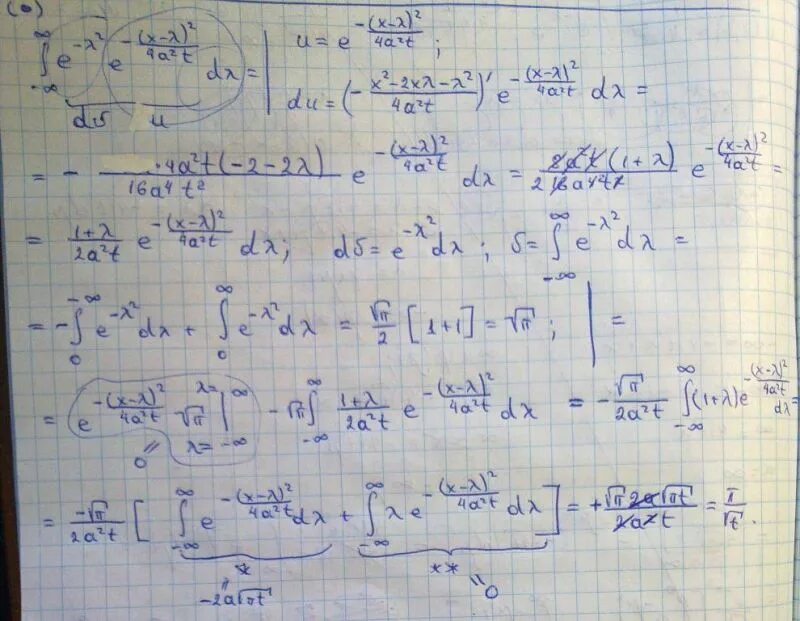 (0)
∫_{-∞}^{∞} e^{-λ²} e^{-(x-λ)²/4a²t} dλ = | u = e^{-(x-λ)²/4a²t} ;
dv u du = (- (x²-2xλ-λ²)/4a²t)' e^{-(x-λ)²/4a²t} dλ =
= - ·4a²t(-2-2λ)/16a⁴t² e^{-(x-λ)²/4a²t} dλ = 8a²t(1+λ)/2 16a⁴t² e^{-(x-λ)²/4a²t} =
= (1+λ)/2a²t e^{-(x-λ)²/4a²t} dλ; dv = e^{-λ²} dλ ; v = ∫_{-∞}^{∞} e^{-λ²} dλ =
= -∫_{0}^{-∞} e^{-λ²} dλ + ∫_{0}^{∞} e^{-λ²} dλ = √π/2 [1+1] = √π ; | =
= e^{-(x-λ)²/4a²t} √π |_{λ=-∞}^{λ=∞} - √π ∫_{-∞}^{∞} (1+λ)/2a²t e^{-(x-λ)²/4a²t} dλ = - √π/2a²t ∫_{-∞}^{∞} (1+λ) e^{-(x-λ)²/4a²t} dλ =
= 0
= -√π/2a²t [ ∫_{-∞}^{∞} e^{-(x-λ)²/4a²t} dλ + ∫_{-∞}^{∞} λ e^{-(x-λ)²/4a²t} dλ ] = + √π 2a√πt/2a²t = π/√t .
* **
= -2a√πt = 0